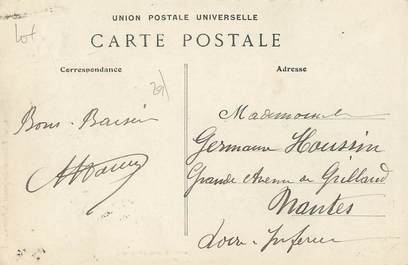 UNION POSTALE UNIVERSELLE
CARTE POSTALE
Correspondance
Adresse
Lot
Bons-Baisers
Mademoiselle
Germaine Houssin
Grande Avenue de Grilland
Nantes
Loire-Inferieure